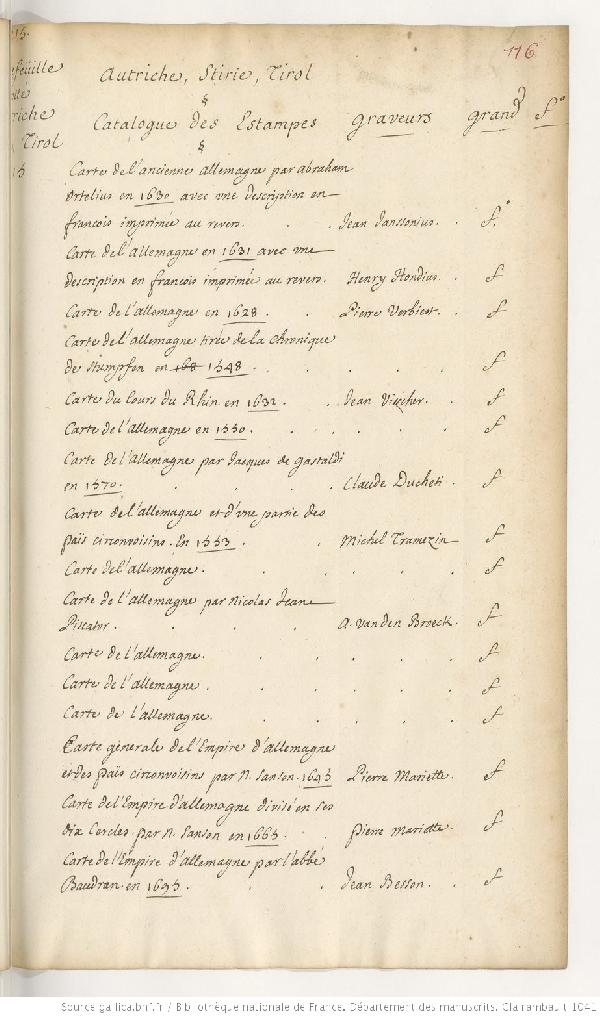 176
Autriche, Stirie, Tirol
Catalogue des Estampes Graveurs grand fo
Carte de l'ancienne allemagne par abraham
Ortelius en 1630 avec une description en
francois imprimée au revers. Jean Janssonius. f.o
Carte de l'allemagne en 1631 avec une
description en francois imprimée au revers. Henry Hondius. f
Carte de l'allemagne en 1628. Pierre Verbiest. f
Carte de l'allemagne tirée de la Chronique
de Stumpfen en 168 1548. f
Carte du Cours du Rhin en 1632. Jean Visscher. f
Carte de l'allemagne en 1550. f
Carte de l'allemagne par Jasques de gastaldi
en 1570. Claude Ducheti. f
Carte de l'allemagne et d'une partie des
païs circonvoisins. En 1553. Michel Tramezin f
Carte de l'allemagne. f
Carte de l'allemagne par Nicolas Jean
Piscator. A. vanden Broeck. f
Carte de l'allemagne. f
Carte de l'allemagne. f
Carte de l'allemagne. f
Carte generale de l'Empire d'allemagne
et des païs circonvoisins par N. Sanson. Pierre Mariette. f
Carte de l'Empire d'allemagne divisé en ses
dix Cercles par N. Sanson en 1665. pierre Mariette. f
Carte de l'Empire d'allemagne par l'abbé
Baudran en 1695. Jean Besson. f
Source gallica.bnf.fr / Bibliothèque nationale de France. Département des manuscrits. Clairambault 1041